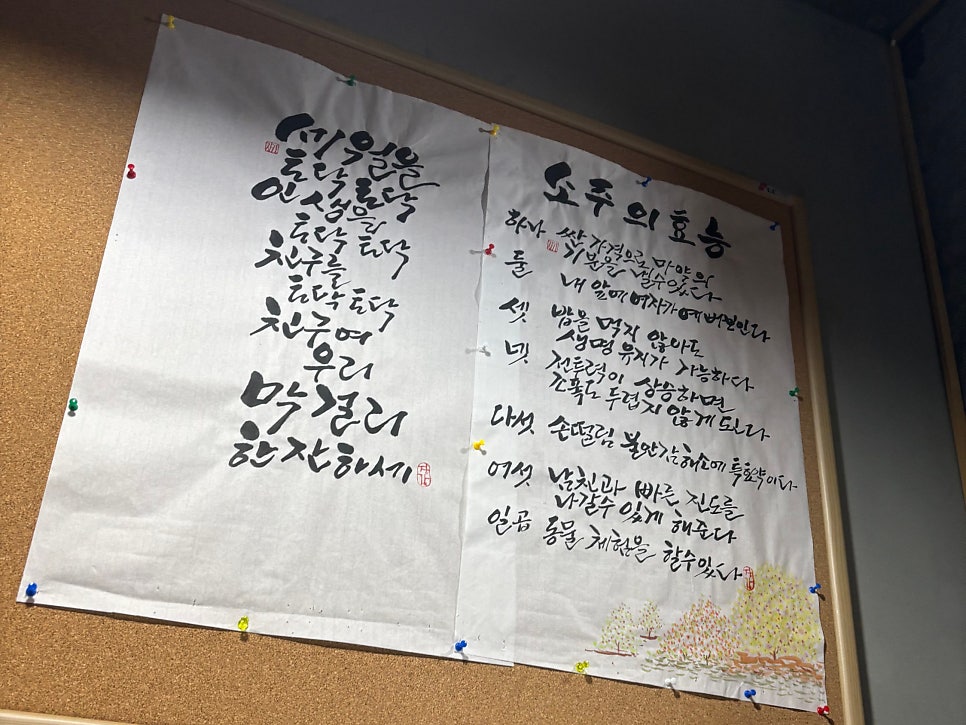 세월을
토닥 토닥
인생을
토닥 토닥
친구를
토닥 토닥
친구여
우리
막걸리
한잔하세
소주의 효능
하나 싼 가격으로 마약의
기분을 낼수있다
둘 내 앞에 여자가 예뻐보인다
셋 밥을 먹지 않아도
생명 유지가 가능하다
넷 전투력이 상승하면
조폭도 두렵지 않게 된다
다섯 손떨림 불안감해소에 특효약이다
여섯 남친과 빠른 진도를
나갈수 있게 해준다
일곱 동물 체험을 할수있다